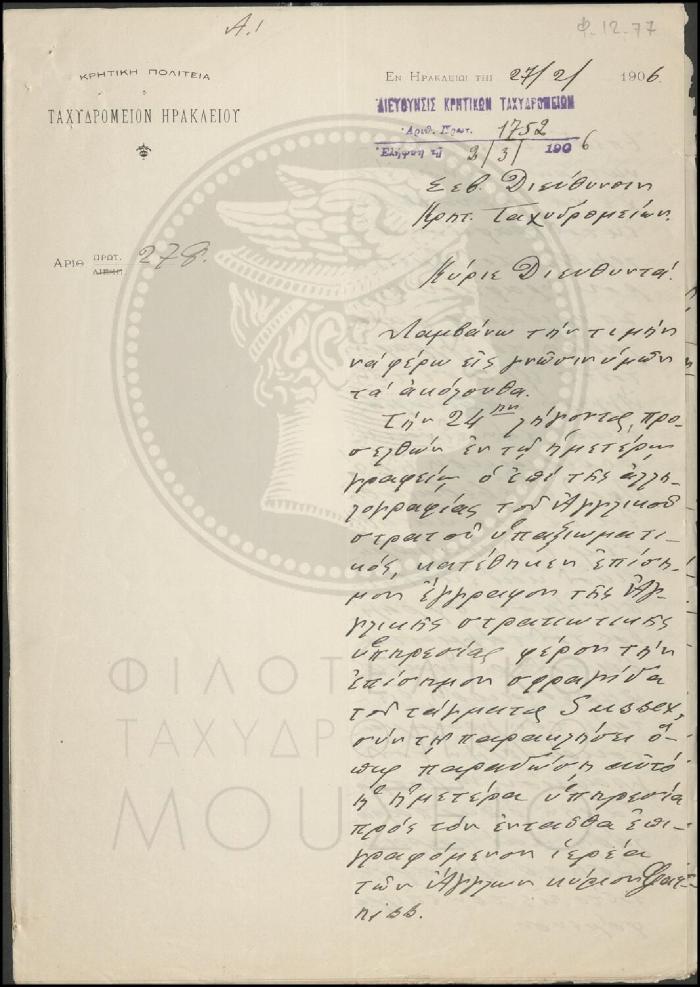 Α.1
Φ.12.77
ΚΡΗΤΙΚΗ ΠΟΛΙΤΕΙΑ
ΤΑΧΥΔΡΟΜΕΙΟΝ ΗΡΑΚΛΕΙΟΥ
ΕΝ ΗΡΑΚΛΕΙΩι ΤΗι 27/2/ 1906
ΔΙΕΥΘΥΝΣΙΣ ΚΡΗΤΙΚΩΝ ΤΑΧΥΔΡΟΜΕΙΩΝ
Αριθ. Πρωτ. 1752
Ελήφθη τῇ 2/3/ 1906
ΑΡΙΘ ΠΡΩΤ. 278.
Σεβ. Διεύθυνσιν
Κρητ. Ταχυδρομείων.
Κύριε Διευθυντά!
Λαμβάνω τὴν τιμὴν
νὰ φέρω εἰς γνῶσιν ὑμῶν
τὰ ἀκόλουθα.
Τὴν 24ην λήγοντος, προ-
σελθὼν ἐν τῷ ἡμετέρῳ
γραφείῳ ὁ ἐπὶ τῆς ἀλλη-
λογραφίας τοῦ Ἀγγλικοῦ
στρατοῦ ὑπαξιωματι-
κός, κατέθηκεν ἐπίση-
μον ἔγγραφον τῆς Ἀγ-
γλικῆς στρατιωτικῆς
ὑπηρεσίας φέρον τὴν
ἐπίσημον σφραγῖδα
τοῦ τάγματος Sussex,
σὺν τῇ παρακλήσει ὅ-
πως παραδώσῃ αὐτὸ
ἡ ἡμετέρα ὑπηρεσία
πρὸς τὸν ἐνταῦθα ἐπι-
γραφόμενον ἱερέα
τῶν Ἄγγλων κύριον
ΦΙΛΟΤΕΛΙΚΟ
ΤΑΧΥΔΡΟΜΙΚΟ
ΜΟΥΣΕΙΟ